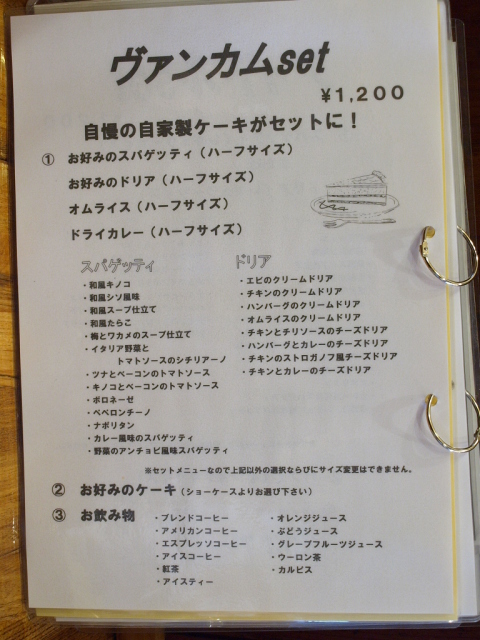 ヴァンカムset
￥1,200
自慢の自家製ケーキがセットに！
① お好みのスパゲッティ（ハーフサイズ）
お好みのドリア（ハーフサイズ）
オムライス（ハーフサイズ）
ドライカレー（ハーフサイズ）
スパゲッティ
・和風キノコ
・和風シソ風味
・和風スープ仕立て
・和風たらこ
・梅とワカメのスープ仕立て
・イタリア野菜と
トマトソースのシチリアーノ
・ツナとベーコンのトマトソース
・キノコとベーコンのトマトソース
・ボロネーゼ
・ペペロンチーノ
・ナポリタン
・カレー風味のスパゲッティ
・野菜のアンチョビ風味スパゲッティ
ドリア
・エビのクリームドリア
・チキンのクリームドリア
・ハンバーグのクリームドリア
・オムライスのクリームドリア
・チキンとチリソースのチーズドリア
・ハンバーグとカレーのチーズドリア
・チキンのストロガノフ風チーズドリア
・チキンとカレーのチーズドリア
※セットメニューなので上記以外の選択ならびにサイズ変更はできません。
② お好みのケーキ（ショーケースよりお選び下さい）
③ お飲み物
・ブレンドコーヒー
・アメリカンコーヒー
・エスプレッソコーヒー
・アイスコーヒー
・紅茶
・アイスティー
・オレンジジュース
・ぶどうジュース
・グレープフルーツジュース
・ウーロン茶
・カルピス